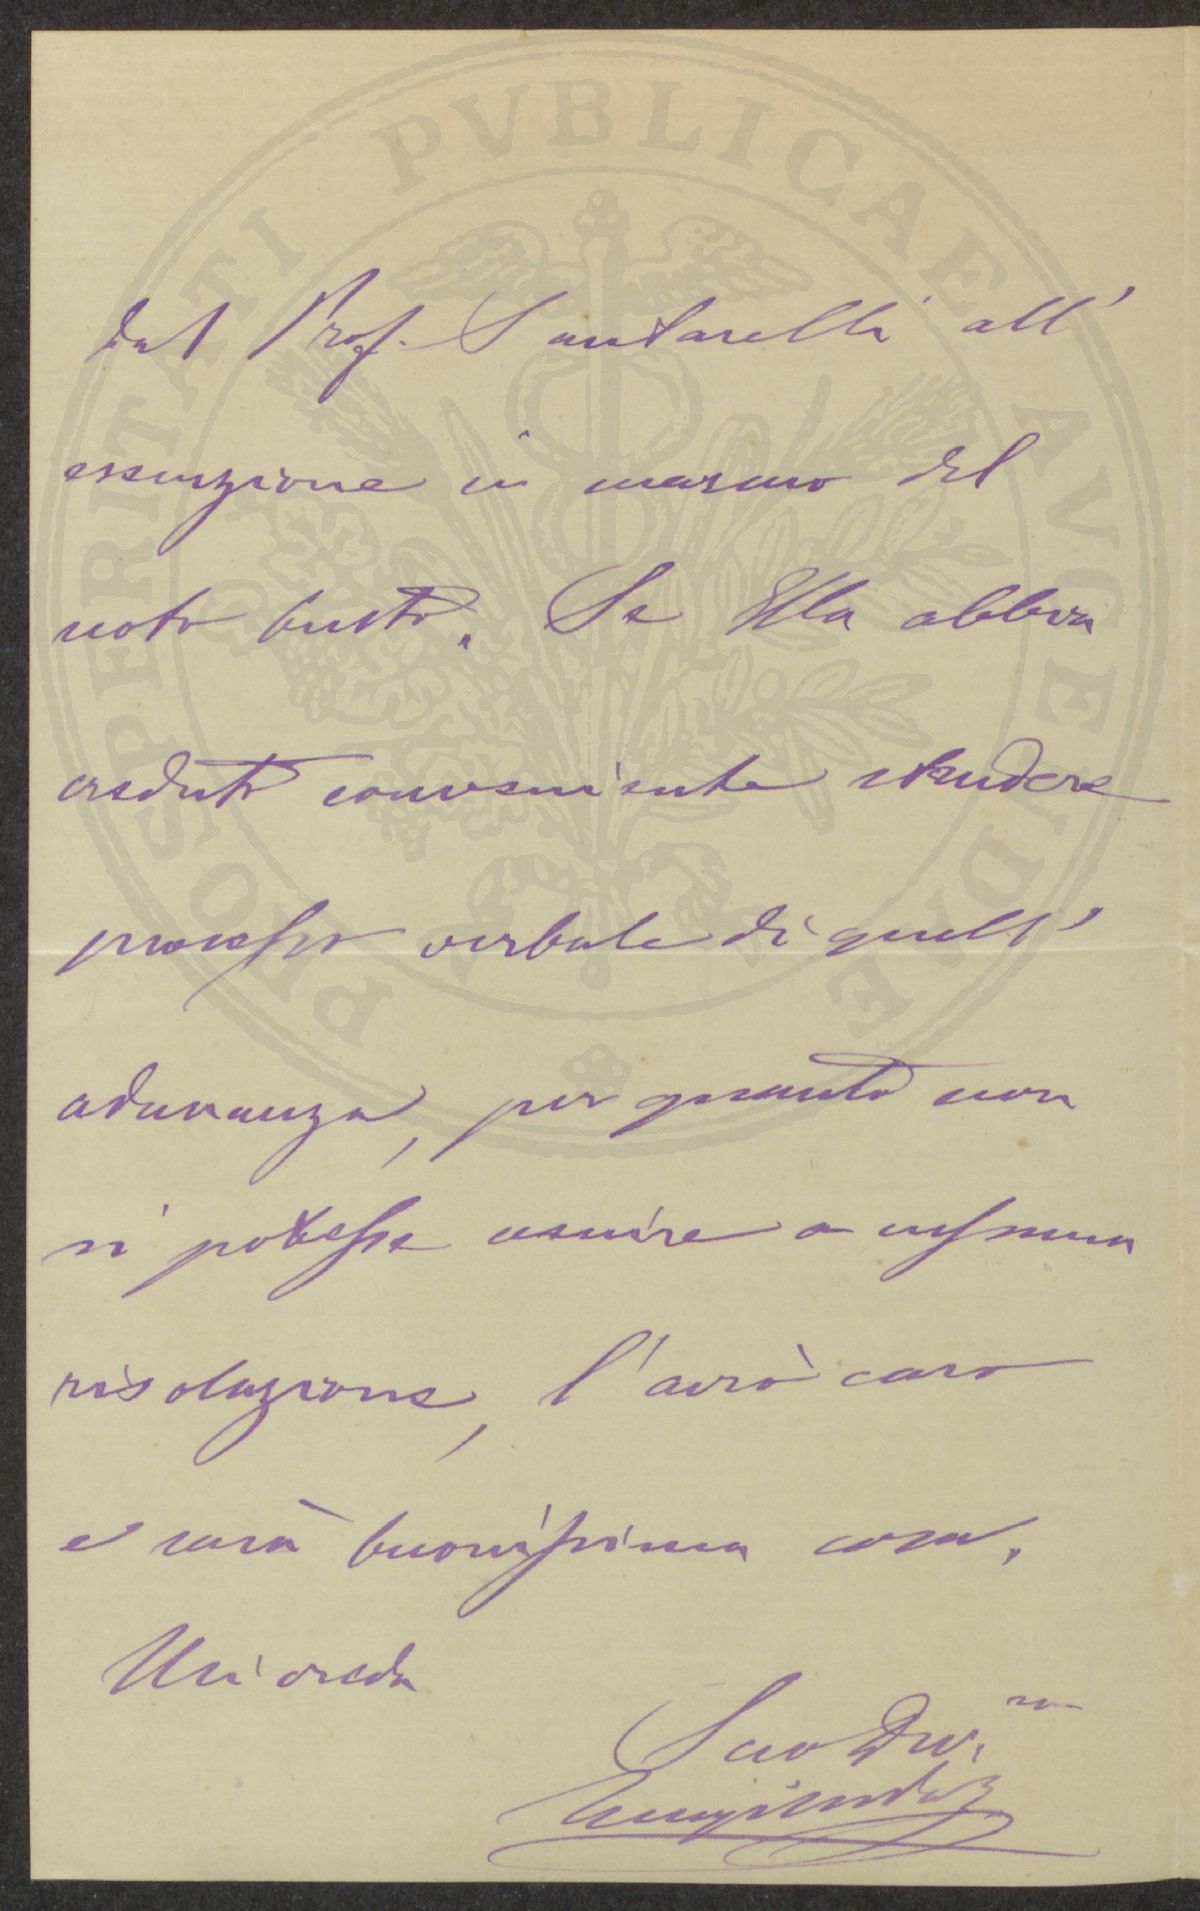 PROSPERITATI PVBLICAE AVGENDAE
dal Prof. Santarelli all'
essecuzione in marmo del
noto busto. Se Ella abbia
creduto conveniente stendere
processo verbale di quell'
adunanza, per quanto non
si potesse venire a nessuna
risoluzione, l'avrò caro
e sarà buonissima cosa.
Mi creda
Suo Dev. mo